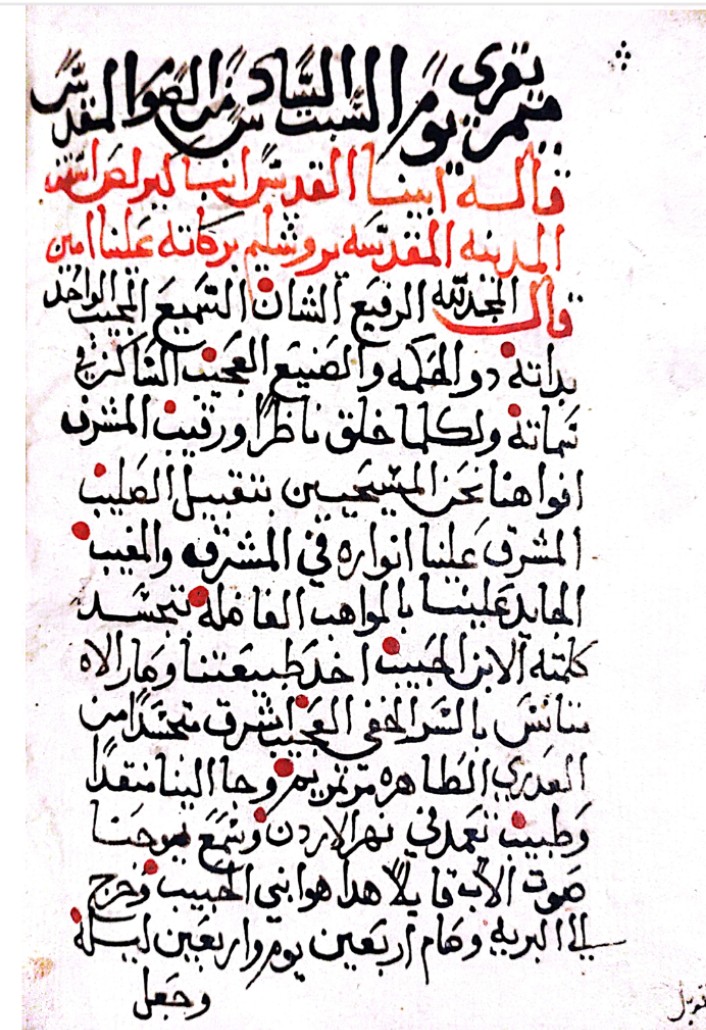 يقرى
ميمر يوم السبت السادس من الصوم المقدس
قاله ابينا القديس انبا بولص اسقف
المدينه المقدسه يروشليم بركاته علينا امين
قال المجد لله الرفيع الشان السميع المجيب الواحد
بداته دو الحكمه والصنيع العجيب الساكن في
سماته ولكلما خلق ناظرًا ورقيب المشرف
افواهنا نحن المسيحيين بتقبيل الصليب
المشرق علينا انواره في المشرق والمغيب
الجايد علينا بالمواهب الفاضله بتجسد
كلمته الابن الحبيب اخد طبيعتنا وصار الاه
متانس بالسر الخفي العجيب اشرق متجسدًا من
العدري الطاهره مرتمريم وجا الينا منقدًا
وطبيب تعمد في نهر الاردن وسمع يوحنا
صوت الاب قايلًا هدا هو ابني الحبيب وخرج
الي البريه وصام اربعين يوم واربعين ليله
وجعل